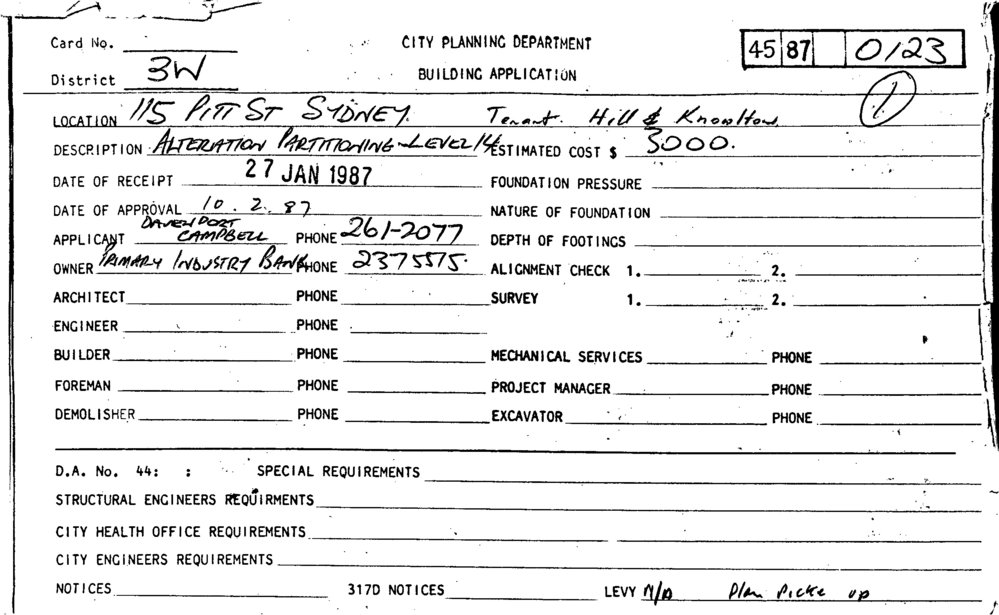 Card No.
CITY PLANNING DEPARTMENT
45 87 0123
District 3W
BUILDING APPLICATION
1
LOCATION 115 PITT ST SYDNEY. Tenant. Hill & Knowlton
DESCRIPTION ALTERATION PARTITIONING - LEVEL 14 ESTIMATED COST $ 3000.
DATE OF RECEIPT 27 JAN 1987 FOUNDATION PRESSURE
DATE OF APPROVAL 10. 2. 87 NATURE OF FOUNDATION
APPLICANT DAVENPORT CAMPBELL PHONE 261-2077 DEPTH OF FOOTINGS
OWNER PRIMARY INDUSTRY BANK PHONE 2375575. ALIGNMENT CHECK 1. 2.
ARCHITECT PHONE SURVEY 1. 2.
ENGINEER PHONE
BUILDER PHONE MECHANICAL SERVICES PHONE
FOREMAN PHONE PROJECT MANAGER PHONE
DEMOLISHER PHONE EXCAVATOR PHONE
D.A. No. 44: : SPECIAL REQUIREMENTS
STRUCTURAL ENGINEERS REQUIRMENTS
CITY HEALTH OFFICE REQUIREMENTS
CITY ENGINEERS REQUIREMENTS
NOTICES 317D NOTICES LEVY N/A Plan Picke up